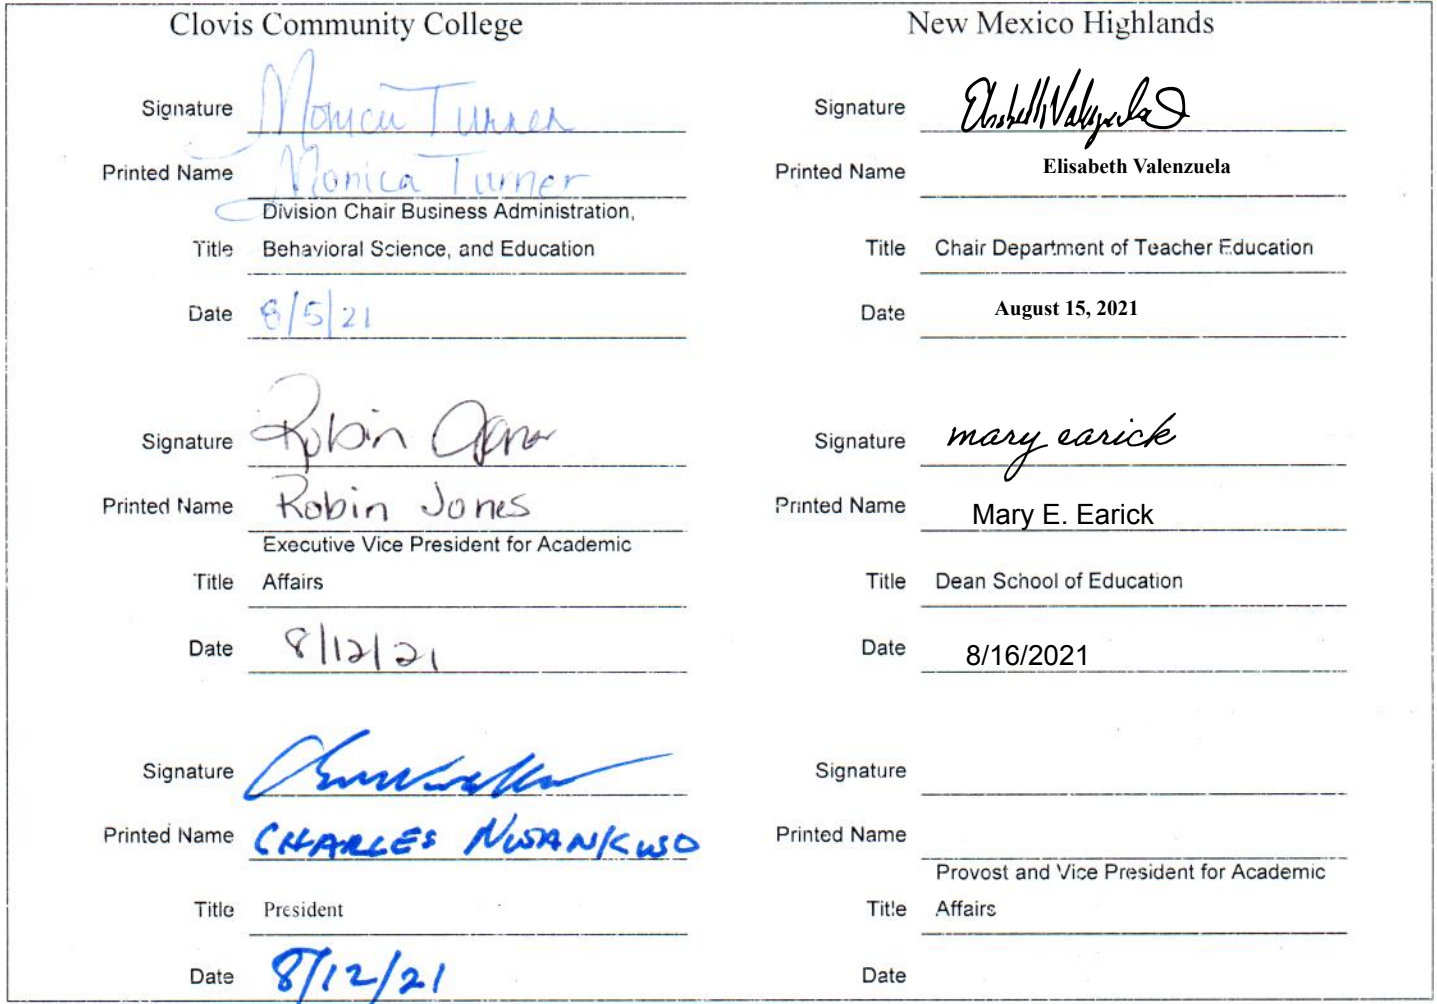 Clovis Community College
Signature Monica Turner
Printed Name Monica Turner
Division Chair Business Administration,
Title Behavioral Science, and Education
Date 8/5/21
Signature Robin Jones
Printed Name Robin Jones
Executive Vice President for Academic
Title Affairs
Date 8/12/21
Signature
Printed Name CHARLES NWANKWO
Title President
Date 8/12/21
New Mexico Highlands
Signature Elisabeth Valenzuela
Printed Name Elisabeth Valenzuela
Title Chair Department of Teacher Education
Date August 15, 2021
Signature mary earick
Printed Name Mary E. Earick
Title Dean School of Education
Date 8/16/2021
Signature
Printed Name
Provost and Vice President for Academic
Title Affairs
Date